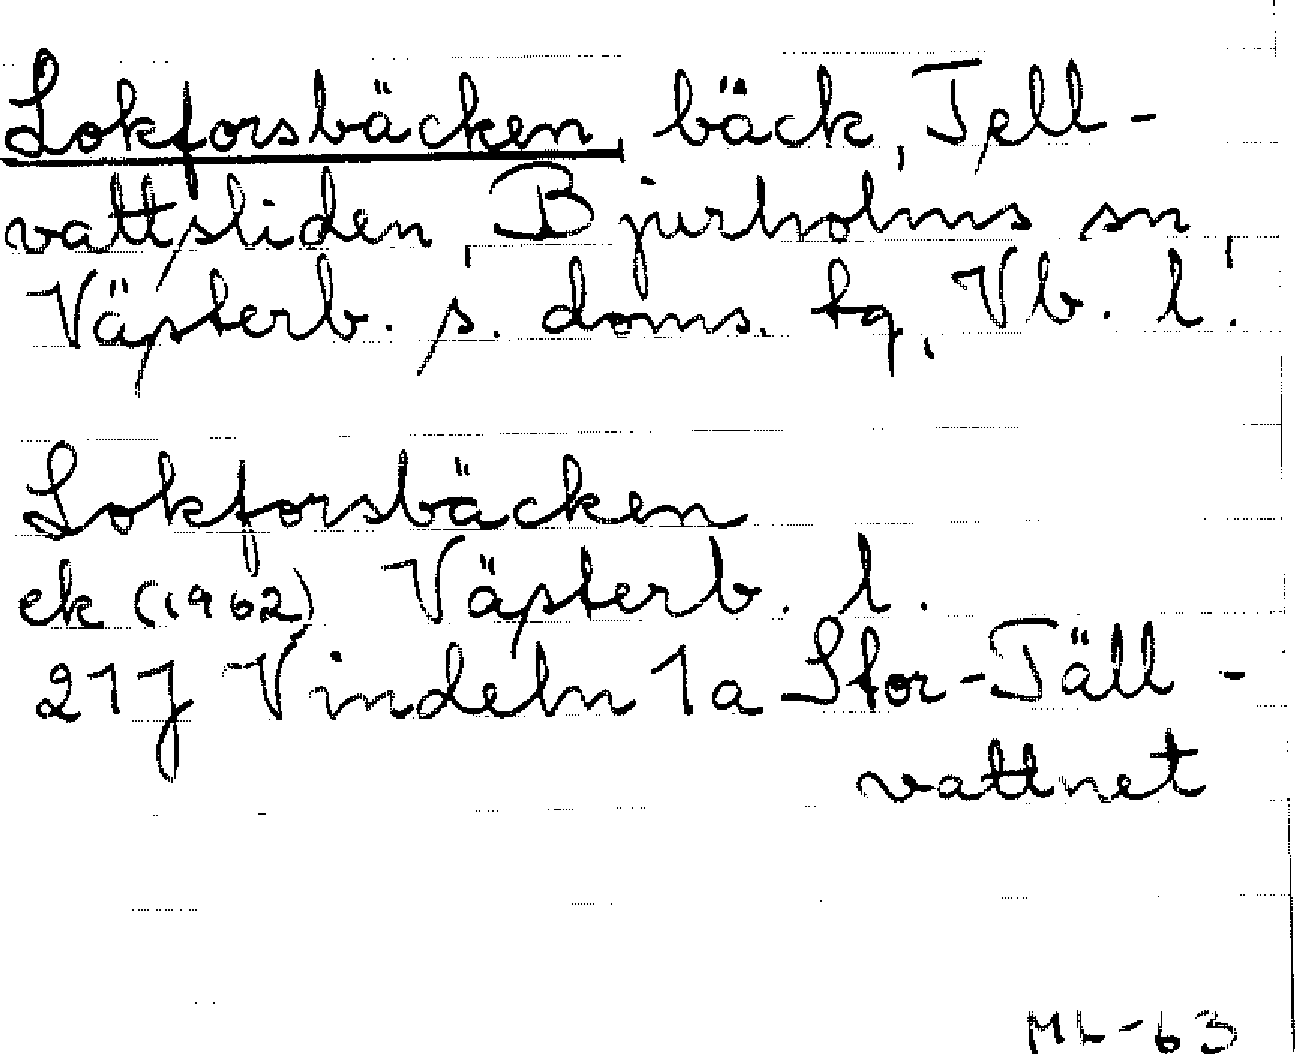 Lokforsbäcken, bäck, Tell-
vattsliden, Bjurholms sn,
Västerb. s. doms. tg, Vb. l.
Lokforsbäcken
ek (1962) Västerb. l.
21J Vindeln 1a Stor-Täll-
vattnet
ML-63